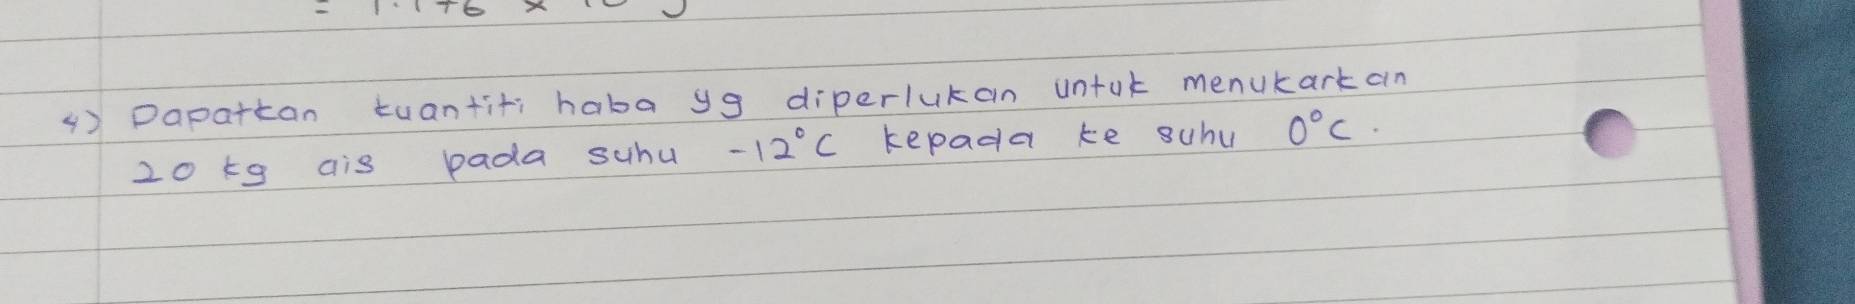 4) Dapatkan kuantiti haba yg diperlukan untuk menukarkan
20 kg ais pada suhu -12°C kepada ke suhu 0°C.